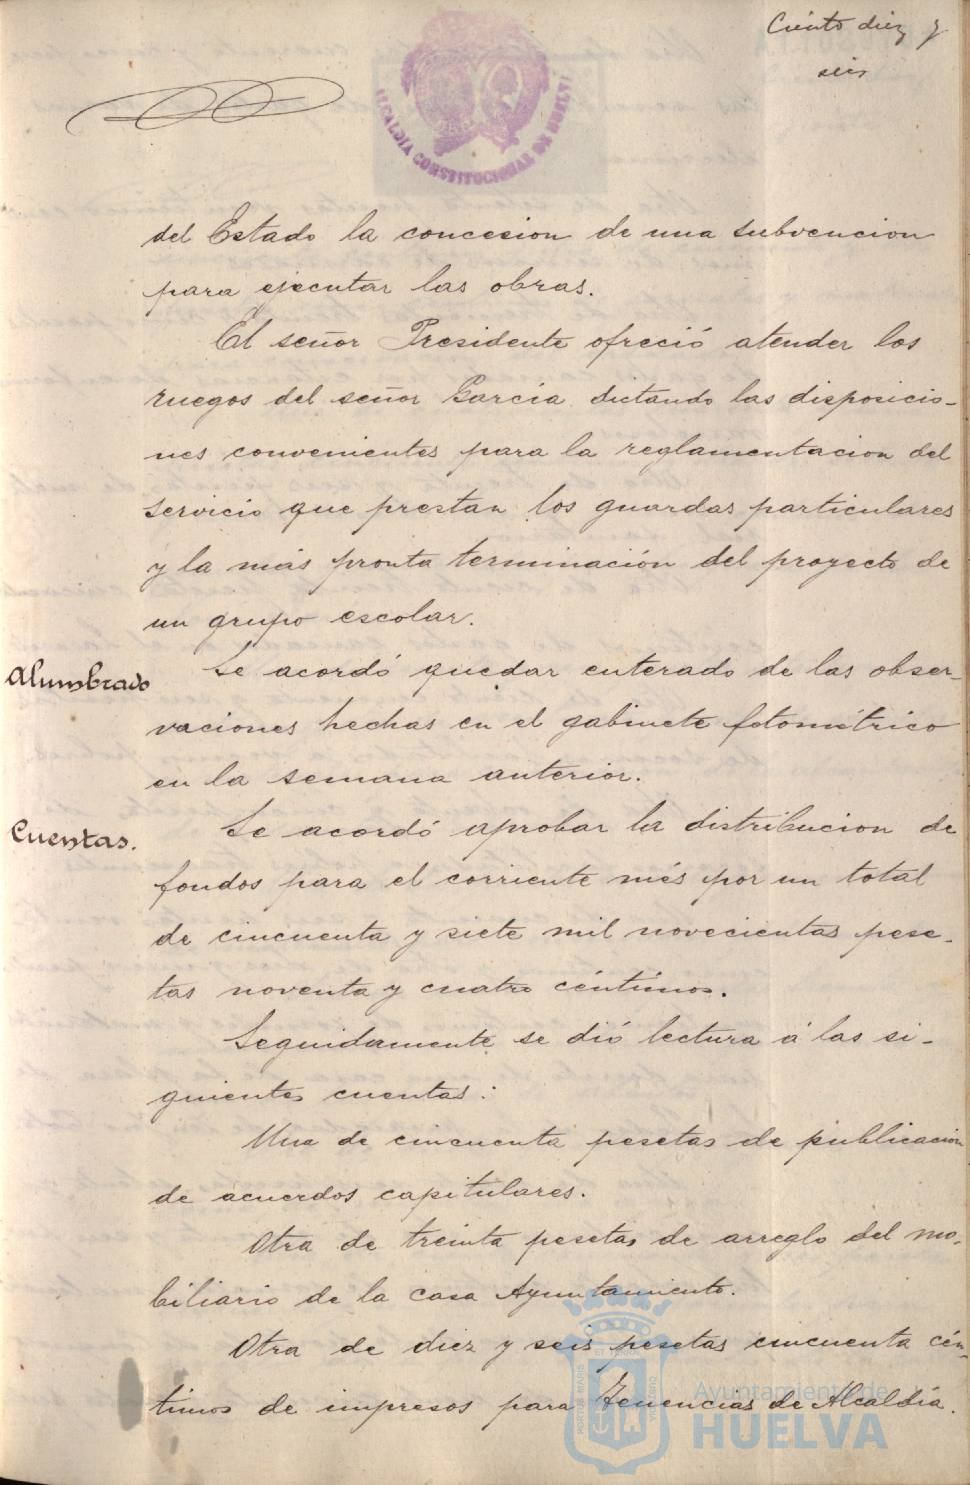 Ciento diez y
seis
ALCALDÍA CONSTITUCIONAL DE HUELVA
del Estado la concesion de una subvencion
para ejecutar las obras.
El señor Presidente ofreció atender los
ruegos del señor García dictando las disposicio-
nes convenientes para la reglamentacion del
servicio que prestan los guardas particulares
y la más pronta terminación del proyecto de
un grupo escolar.
Alumbrado
Se acordó quedar enterado de las obser-
vaciones hechas en el gabinete fotométrico
en la semana anterior.
Cuentas.
Se acordó aprobar la distribucion de
fondos para el corriente més por un total
de cincuenta y siete mil novecientas pese-
tas noventa y cuatro céntimos.
Seguidamente se dió lectura á las si-
guientes cuentas:
Una de cincuenta pesetas de publicación
de acuerdos capitulares.
Otra de treinta pesetas de arreglo del mo-
biliario de la casa Ayuntamiento.
Otra de diez y seis pesetas cincuenta cén-
timos de impresos para Tenencias de Alcaldía.
Ayuntamiento de
HUELVA